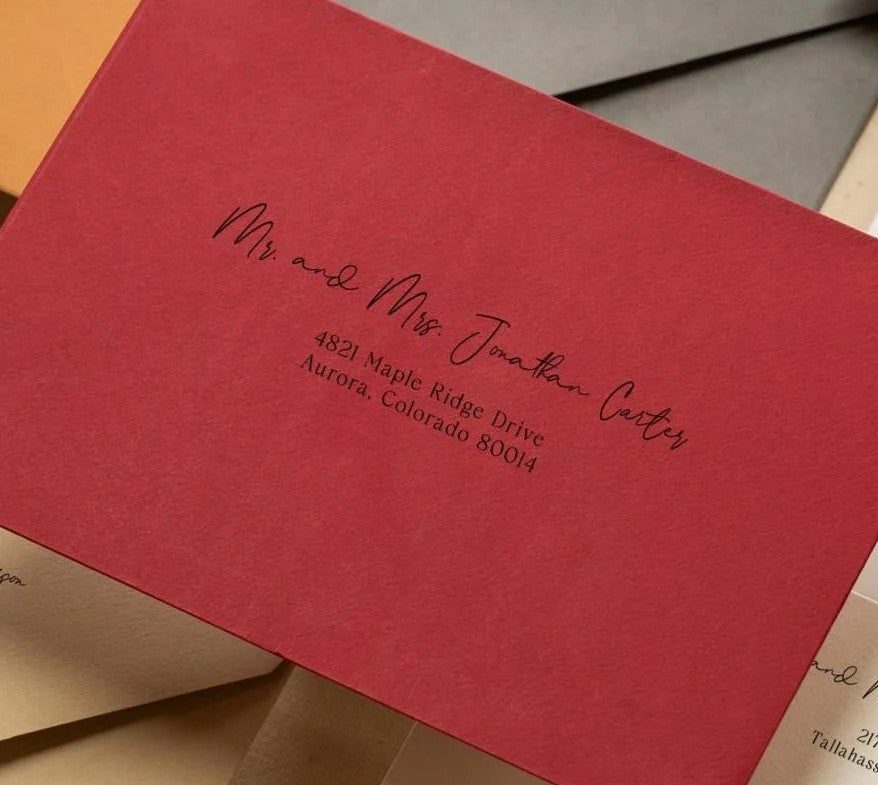 Mr. and Mrs. Jonathan Carter
4821 Maple Ridge Drive
Aurora, Colorado 80014
and
217